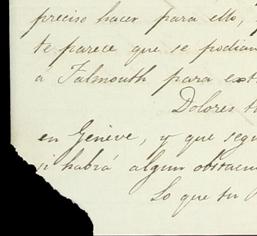 preciso hacer para ello,
te parece que se podian
á Falmouth para
Dolores
en Genéve, y que
si habrá algun
Lo que tu